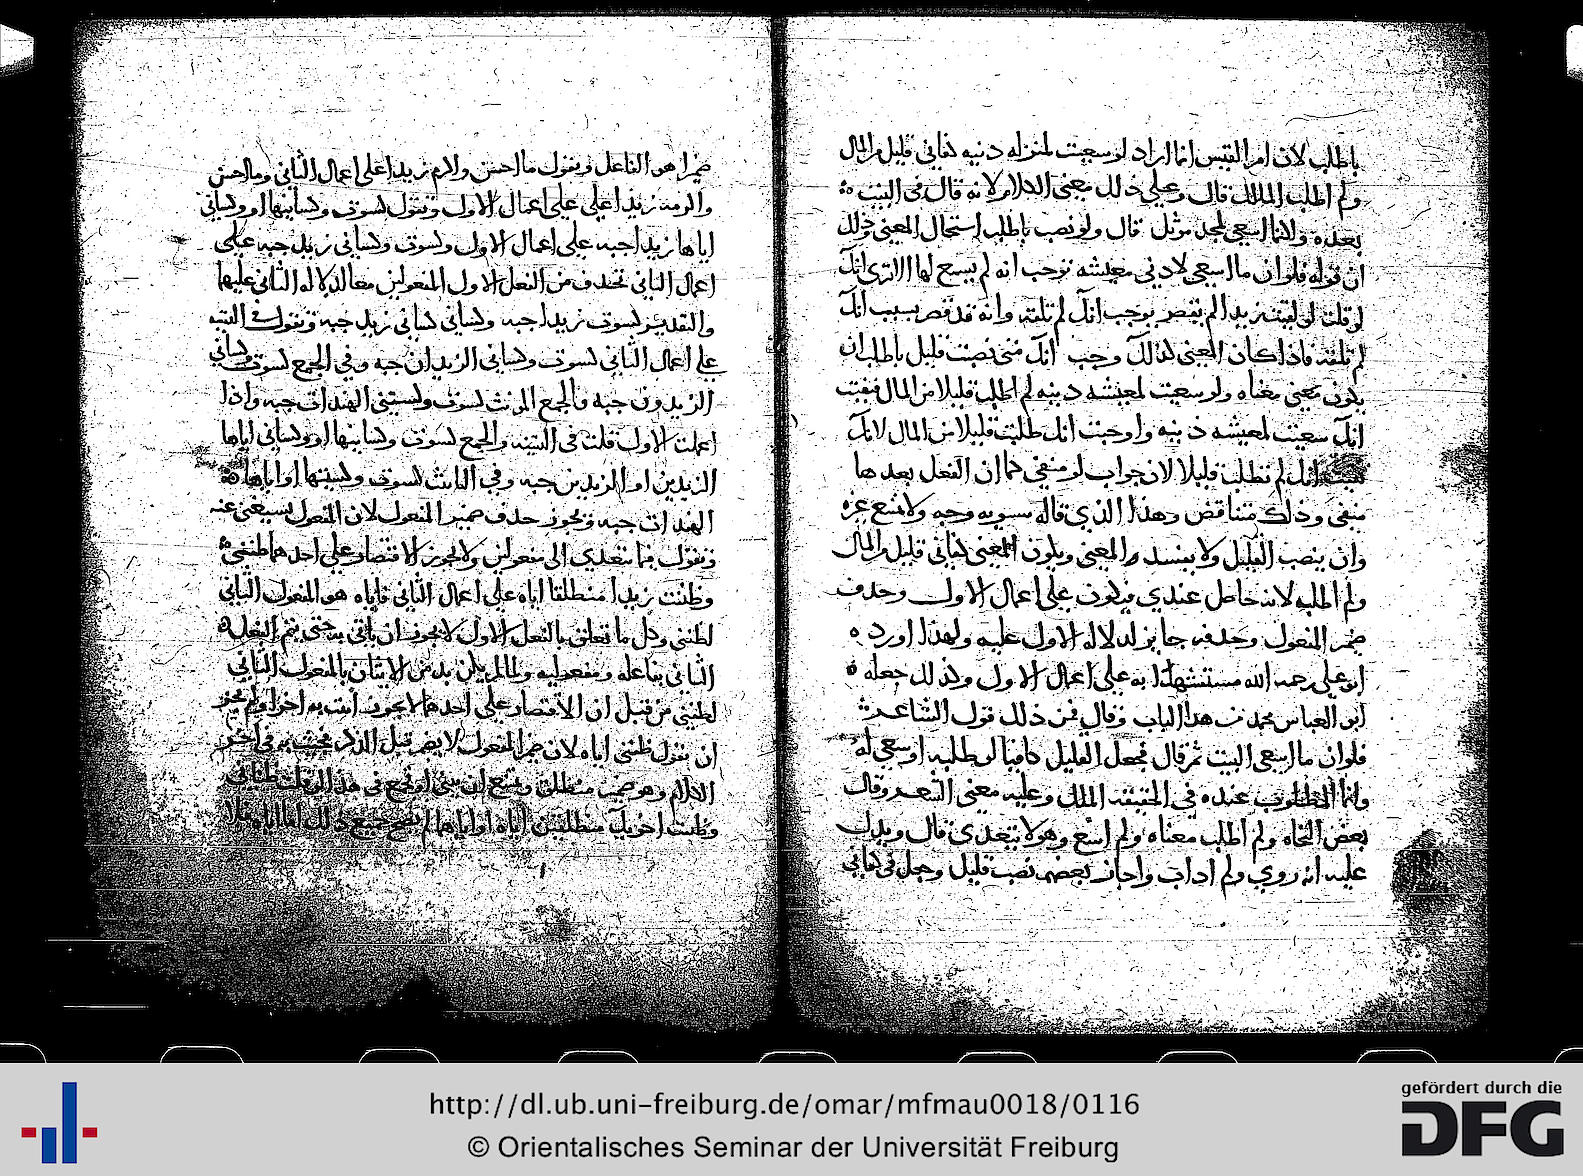 باطلب لان امرا القيس انما اراد لو سعيت لمنزله دنيه كفاني قليل من المال
ولم اطلب الملك قال وعلي ذلك معنى الكلام لانه قال في البيت
بعده ولكنما اسعى لمجد موثل قال ولو نصب باطلب استحال المعنى وذلك
ان قوله فلو ان ما اسعى لادنى معيشه توجب انه لم يسع لها الا ترى انك
لو قلت لو لقيت زيدا لم يقصر توجب انك لم تلقه وانه قد قصر بسبب انك
لم تلقه فاذا كان المعنى كذلك وجب انك متى نصبت قليل باطلب ان
يكون معنى معناه ولو سعيت لمعيشه دنيه لم اطلب قليلا من المال فنفيت
انك سعيت لمعيشه دنيه واوجبت انك طلبت قليلا من المال لانك
انك لم تطلب قليلا لان جواب لو منفي كما ان الفعل بعدها
منفي وذلك متناقض وهذا الذي قاله سيبويه وجه ولا يمنع غيره
وان ينصب القليل ولا يفسد المعنى ويكون المعنى كفاني قليل من المال
ولم اطلبه لانه حاصل عندي فيكون على اعمال الاول وحذف
ضمير المفعول وحذفه جايز لدلاله الاول عليه ولهذا اورده
ابو علي رحمه الله مستشهدا به على اعمال الاول وكذلك جعله
ابو العباس محمد من هذا الباب وقال فمن ذلك قول الشاعر
فلو ان ما اسعى البيت ثم قال فجعل القليل كافيا لو طلبه او سعى له
وانما المطلوب عنده في الحقيقه الملك وعليه معنى الشعر وقال
بعض النحاه ولم اطلب معناه ولم اسع وهو لا يتعدى قال ويدل
عليه انه روي ولم اداب واجاز بعضهم نصب قليل وجعل في كفاني
ضميرا هو الفاعل وتقول ما احسن واكرم زيدا على اعمال الثاني وما احسن
واكرمه زيدا على اعمال الاول وتقول كسوت وكسانيها او وكساني
اياها زيدا جبه على اعمال الاول وكسوت وكساني زيد جبه على
اعمال الثاني تحذف من الفعل الاول المفعولين معا لدلاله الثاني عليهما
والتقدير كسوت زيدا جبه وكساني زيد جبه وتقول في التثنيه
على اعمال الثاني كسوت وكساني الزيدان جبه وفي الجمع كسوت وكساني
الزيدون جبه والجمع المونث كسوت وكستني الهندات جبه واذا
اعملت الاول قلت في التثنيه والجمع كسوت وكسانيها او وكساني اياها
الزيدين او الزيدين جبه وفي التانيث كسوت وكستنيها او اياها
الهندات جبه وتجوز حذف ضمير المفعول لان المفعول يستغنى عنه
وتقول فيما يتعدى الى مفعولين ولا يجوز الاقتصار على احدهما ظننى
وظننت زيدا منطلقا اياه على اعمال الثاني فاياه هو المفعول الثاني
لظننى وكل ما تعلق بالفعل الاول لا يجوز ان ياتي به حتى يتم الفعل
الثاني بفاعله ومفعوليه ولما لم يكن بد من الاتيان بالمفعول الثاني
لظننى من قبل ان الاقتصار على احدهما لا يجوز اتيت به اخرا ولم يجز
ان يقول ظننى اياه لان ضمير المفعول لا يضمر قبل الذكر فجيت به في اخر
الكلام وهو ضمير منطلق ويمتنع ان يثنى او تجمع في هذا لو قلت ظناني
وظننت اخويك منطلقين اياه او اياهما لم يصح جميع ذلك اما اياه فلا
http://dl.ub.uni-freiburg.de/omar/mfmau0018/0116
© Orientalisches Seminar der Universität Freiburg
gefördert durch die
DFG